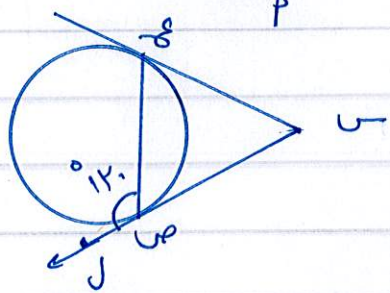 م
ع
س
١٢٠°
ص
ل